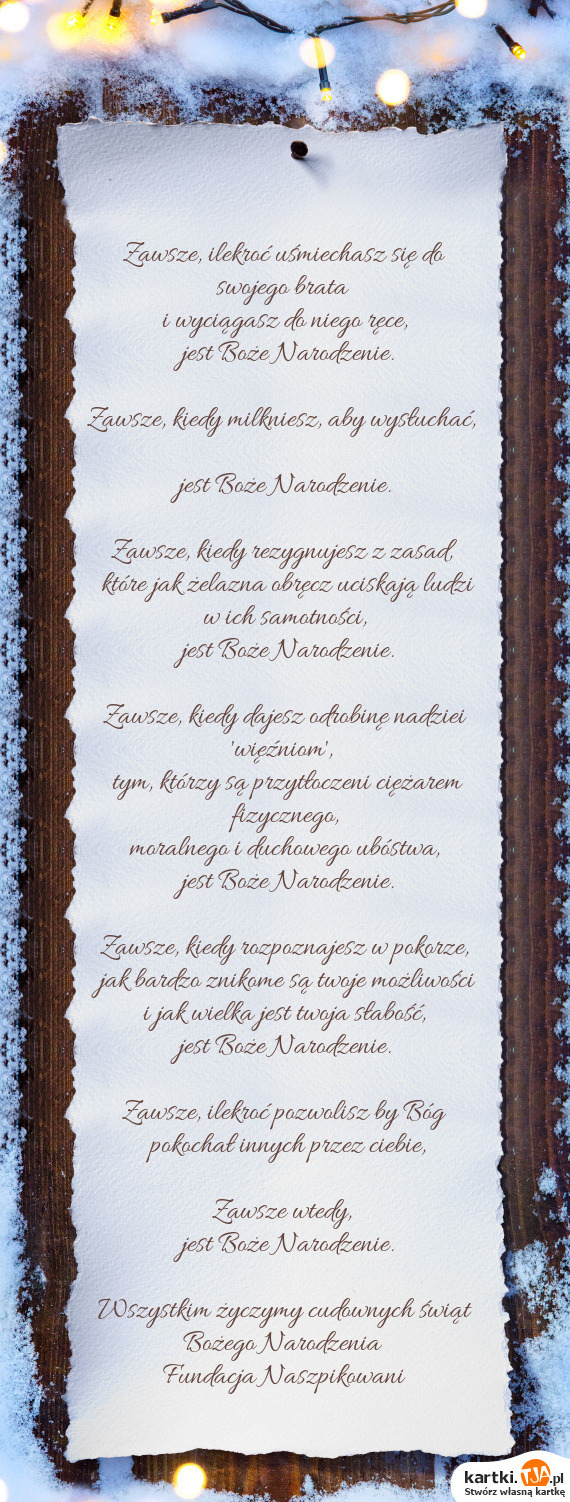 Zawsze, ilekroć uśmiechasz się do
swojego brata
i wyciągasz do niego ręce,
jest Boże Narodzenie.
Zawsze, kiedy milkniesz, aby wysłuchać,
jest Boże Narodzenie.
Zawsze, kiedy rezygnujesz z zasad,
które jak żelazna obręcz uciskają ludzi
w ich samotności,
jest Boże Narodzenie.
Zawsze, kiedy dajesz odrobinę nadziei
'więźniom',
tym, którzy są przytłoczeni ciężarem
fizycznego,
moralnego i duchowego ubóstwa,
jest Boże Narodzenie.
Zawsze, kiedy rozpoznajesz w pokorze,
jak bardzo znikome są twoje możliwości
i jak wielka jest twoja słabość,
jest Boże Narodzenie.
Zawsze, ilekroć pozwolisz by Bóg
pokochał innych przez ciebie,
Zawsze wtedy,
jest Boże Narodzenie.
Wszystkim życzymy cudownych świąt
Bożego Narodzenia
Fundacja Naszpikowani
kartki.TJA.pl
Stwórz własną kartkę